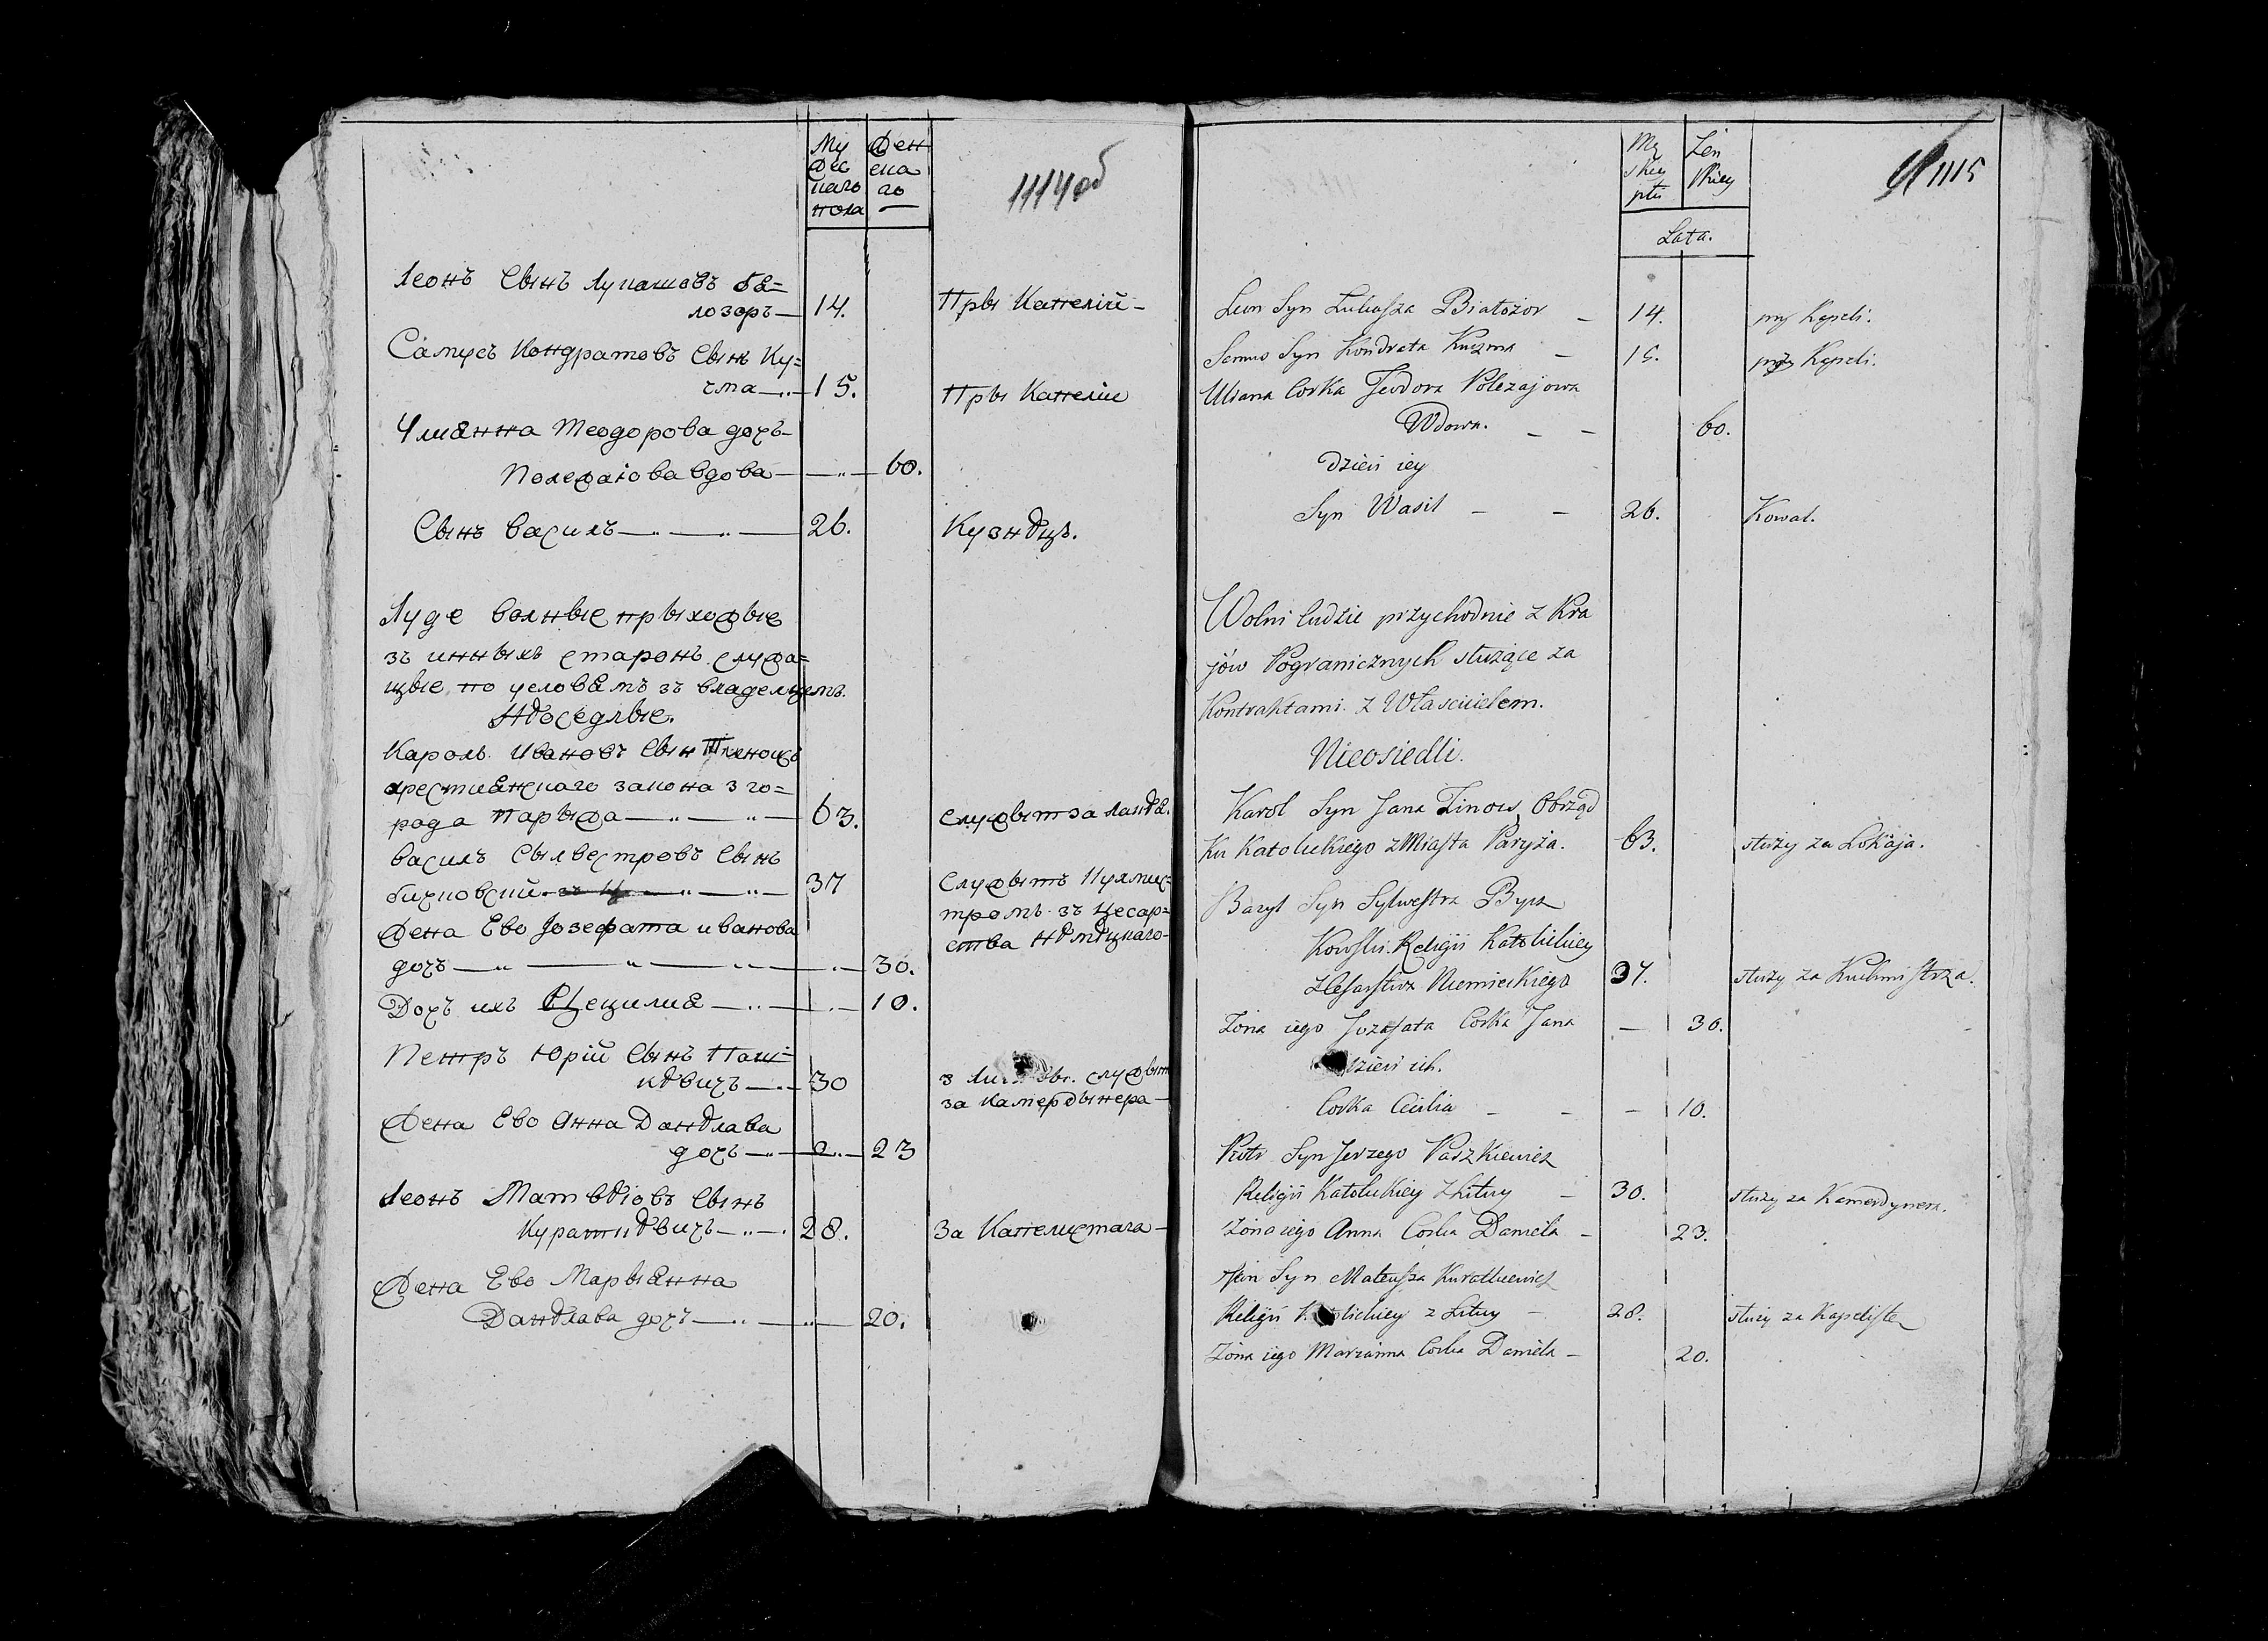 Му
жес
каго
пола
Жен
ска
го
1114об
Леонъ Сынъ Лукашовъ бѣ=
лозоръ — 14. Пры Капеліи —
Самусъ Кондратовъ Сынъ Ку=
чма — 15. Пры Капеліи
Улиѣнна Теодорова дочъ —
Полежаіова вдова — 60.
Сынъ Василъ — 26. Кузнѣцъ.
Луде волные прыхожые
зъ инныхъ старонъ служа=
щые по условѣмъ зъ владелцемъ.
Нѣоседлые.
Кароль Ивановъ Сын Тиноисъ
хрестиѣнскаго закона з го=
рода Парыжа — 63. Служыт за лакѣѣ.
Василъ Сылвестровъ Сынъ
бисковскій — 37 Служытъ Кухмис=
тромъ зъ Цесар=
ства Нѣмѣцкаго —
Жена Ево Јозефата иванова
дочъ — 30.
Дочъ ихъ Цецилиѣ — 10.
Петръ Юрій Сынъ Паш=
кѣвичъ — 30 з служыт
за камердынера —
Жена Ево Анна Данѣлава
дочъ — 23
Леонъ Матвѣіовъ Сынъ
Кураткѣвичъ — 28. За Капелистага —
Жена Ево Марыѣнна
Данѣлава дочъ — 20.
Mę
skiey
płci
Żen
skiey
1115
Lata.
Leon Syn Łukasza Białozor — 14. przy Kapeli.
Semus Syn Kondrata Kuczma — 15. przy Kapeli.
Uliana Corka Teodora Poleżajowa
Wdowa. — — 60.
Dzieci iey
Syn Wasil — — 26. Kowal.
Wolni ludzie przychodnie z Kra
jów Pogranicznych służące za
Kontraktami z Właścicielem.
Nieosiedli.
Karol Syn Jana Tinois, Obrząd
ku Katolickiego z Miasta Paryża. 63. służy za Lokaja.
Bazyl Syn Sylwestra Bysz
Kowski. Religii Katolickiey
z Cesarstwa Niemieckiego 37. służy za Kuchmistrza.
Żona iego Jozafata Corka Jana — 30.
Dzieci ich.
Corka Cecilia — — — 10.
Piotr Syn Jerzego Paszkiewicz
Religii Katolickiey z Litwy — 30. służy za Kamerdynera.
Żona iego Anna Corka Daniela — 23.
Syn Mateusza Kuratkiewicz
Religii Katolickiey z Litwy — 28. służy za Kapelistę
Żona iego Marianna Corka Daniela — 20.